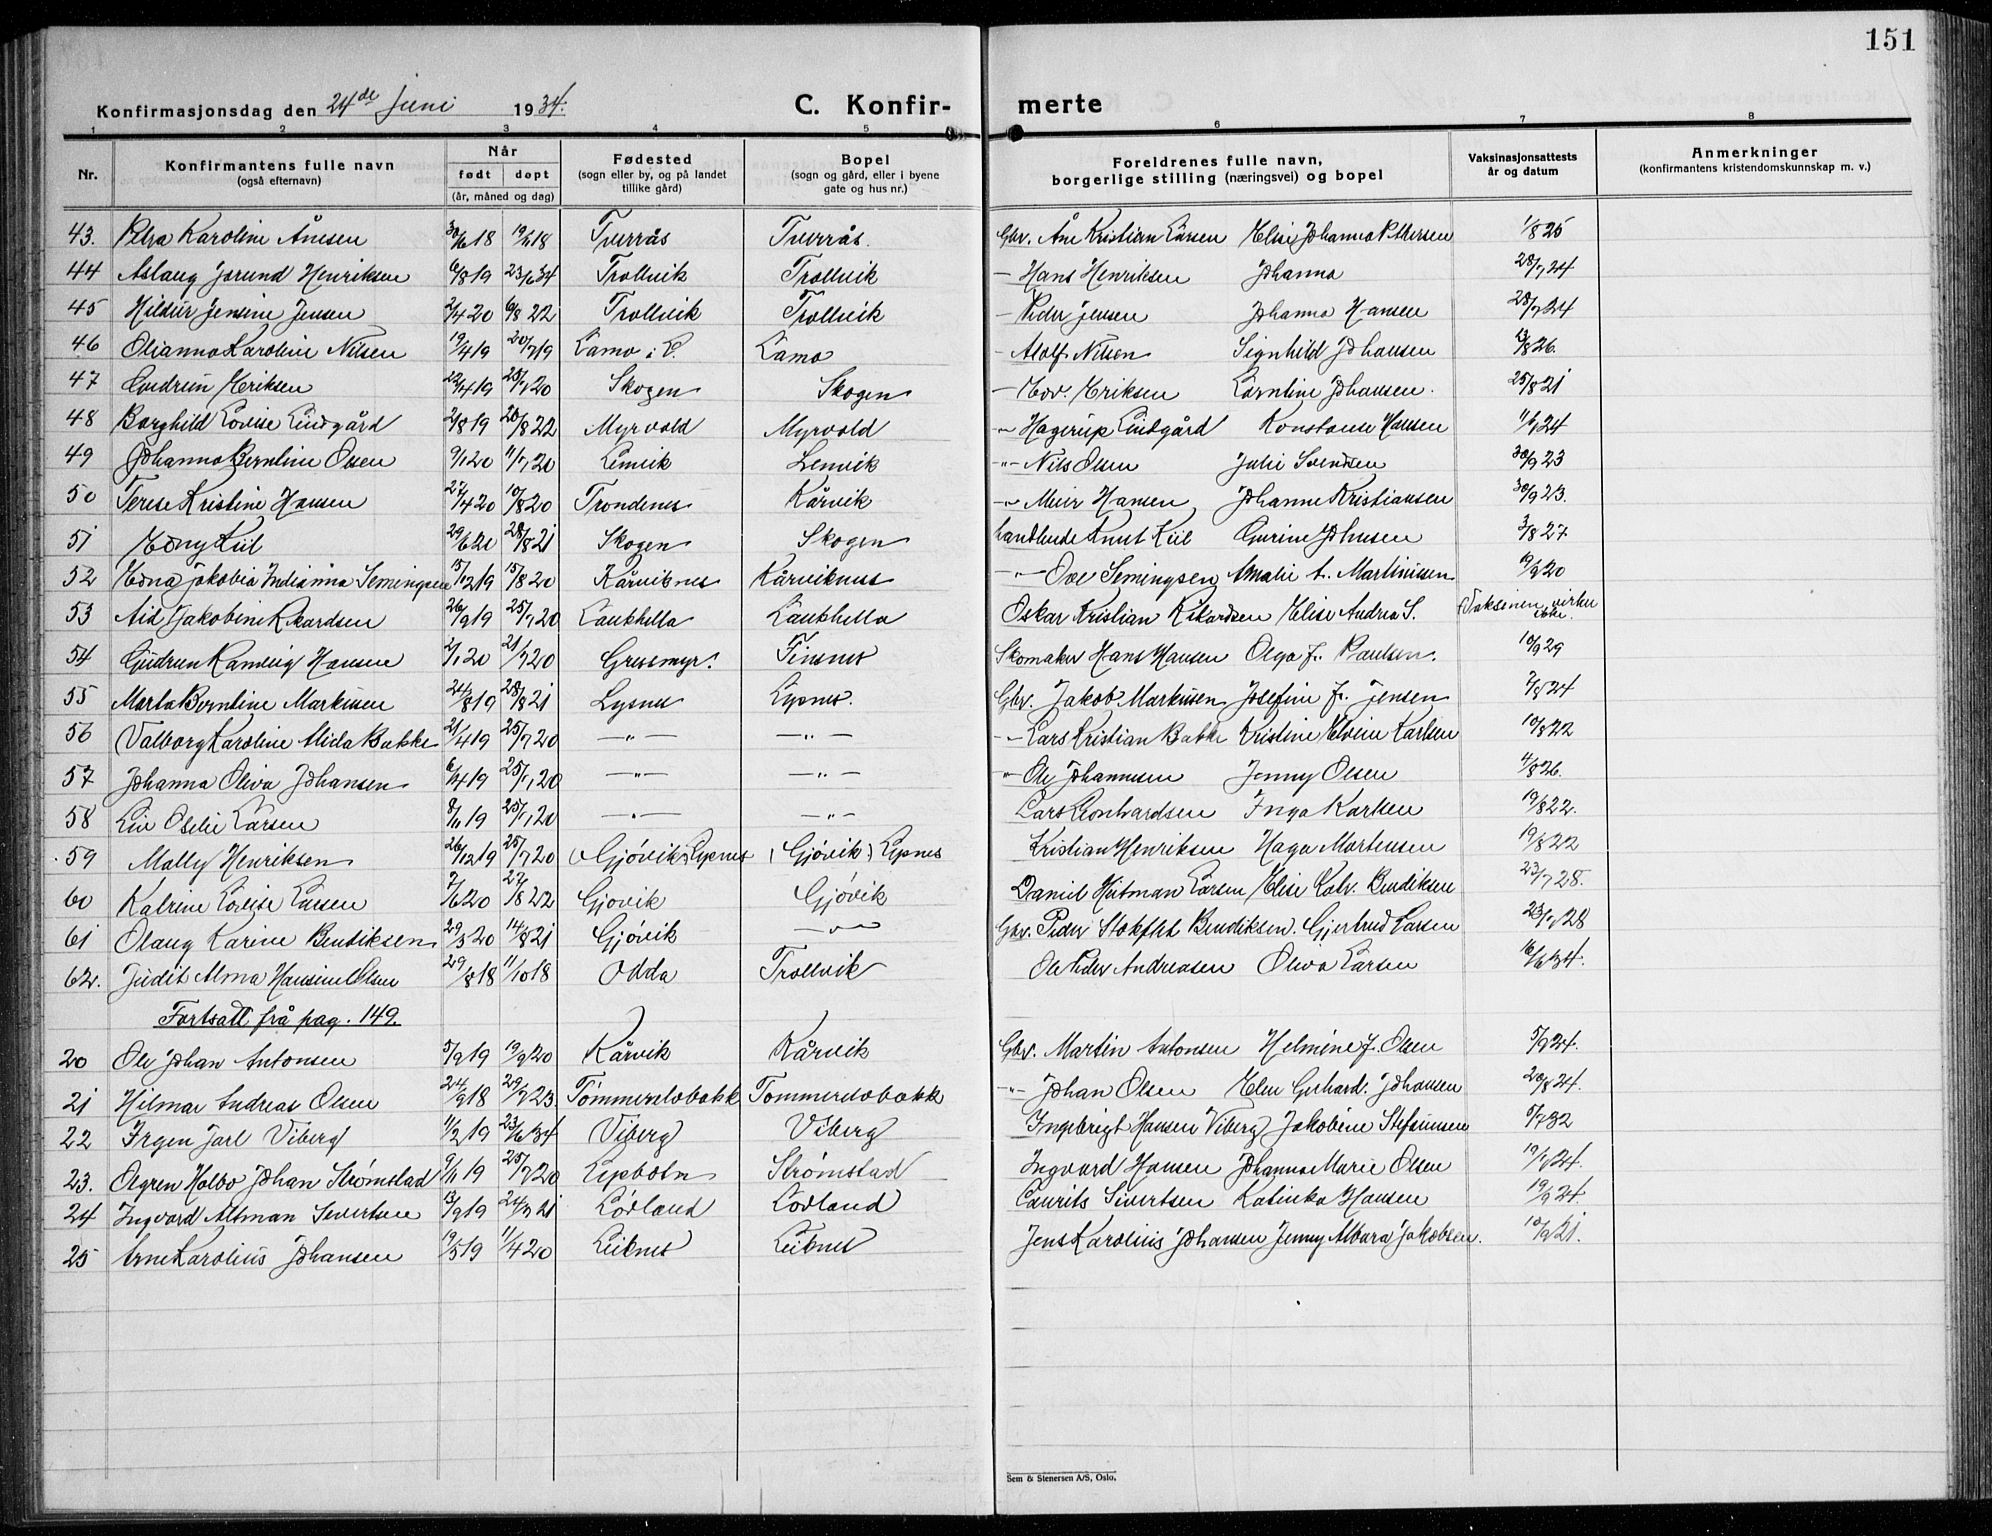 151
Konfirmasjonsdag den 24de juni 1934.
C. Konfir- merte
1 2 3 4 5 6 7 8
Nr. Konfirmantens fulle navn (også efternavn) Når født døpt (år, måned og dag) Fødested (sogn eller by, og på landet tillike gård) Bopel (sogn og gård, eller i byene gate og hus nr.) Foreldrenes fulle navn, borgerlige stilling (næringsvei) og bopel Vaksinasjonsattests år og datum Anmerkninger (konfirmantens kristendomskunnskap m. v.)
43. Petra Karoline Ånesen 18 18 Tverrås Tverrås. Gbr. Åne Kristian Larsen Elise Johanna Pettersen 1/8 25
44 Aslaug Jorund Henriksen 6/8 19 23/6 34 Trollvik Trollvik – Hans Henriksen Johanna 28/7 24
45 Hildur Jensine Jensen 2/4 20 6/8 22 Trollvik Trollvik – Peder Jensen Johanna Hansen 28/7 24
46 Olianna Karoline Nilsen 19/4 19 20/7 19 Lamo i L. Lamo – Adolf Nilsen Signhild Johansen 13/8 26.
47 Gudrun Eriksen 22/4 19 25/7 20 Skogen Skogen – Edv. Eriksen Berntine Johansen. 25/8 21
48 Borghild Lovise Lindgård 2/8 19 20/8 22 Myrvold Myrvold –"– Hagerup Lindgård Konstanse Hansen 24
49 Johanna Berntine Olsen 9/1 20 11/7 20 Lenvik Lenvik –"– Nils Olsen Julie Svendsen 30/9 23
50 Terese Kristine Hansen 27/4 20 10/8 20 Trondenes Kårvik –"– Meier Hansen Johanne Kristiansen 30/9 23.
51 Edny Kiil 29/6 20 28/8 21 Skogen Skogen handlende Knut Kiil Gurine Johnsen 3/8 27
52 Edna Jakobia Indianna Semingsen 15/12 19 15/8 20 Kårviknes Kårviknes –"– Ove Semingsen Amalie A. Martinussen 19/9 20
53 Aid Jakobine Rikardsen 26/9 19 25/7 20 Laukhella Laukhella Oskar Kristian Rikardsen Elise Andrea S. (Vaksinen virker ikke.
54 Gudrun Ranveig Hansen 2/1 20 21/7 20 Gressmyr. Finsnes Skomaker Hans Hansen Olga J. Paulsen. 10/9 29
55 Marta Berntine Markusen 24/8 19 28/8 21 Lysnes Lysnes. Gbr. Jakob Markusen Josefine J. Jensen 24
56 Valborg Karoline Alida Bakke 21/4 19 25/7 20 –"– –"– –"– Lars Kristian Bakke Kristine Elvine Karlsen 10/8 22
57 Johanna Oliva Johansen 6/4 19 25/1 20 –"– –"– –"– Ole Johannesen Jenny Olsen 4/8 26.
58 Liv Oselie Larsen 8/11 19 25/1 20 –"– –"– Lars Leonhardsen Inga Karlsen 19/8 22.
59 Mally Henriksen 26/12 19 25/7 20 (Gjøvik) Lysnes (Gjøvik) Lysnes Kristian Henriksen Haga Mortensen 19/8 22
60 Katrine Lovise Larsen 7/6 20 27/8 22 Gjøvik Gjøvik Daniel Hitman Larsen Elise Katr. Bendiksen 23/7 28.
61 Olaug Karine Bendiksen 29/3 20 14/8 21 Gjøvik –"– Gbr. Peder Stokflet Bendiksen. Gjertrud Larsen 23/7 28
62. Judit Alma Hansine Olsen 29/8 18 11/10 18 Odda Trollvik Ole Peder Andreasen Oliva Larsen 16/6 34.
Fortsatt frå pag. 149.
20 Ole Johan Antonsen 5/9 19 19/9 20 Kårvik Kårvik Gbr. Martin Antonsen Helmine J. Olsen 5/9 24.
21 Hilmar Andreas Olsen 24/9 18 29/7 23. Tømmerelvbakk Tømmerelvbakk –"– Johan Olsen Elen Gerhard. Johansen 20/8 24.
22 Irgen Jarl Viberg 11/2 19 23/6 34 Viberg Viberg Ingebrigt Hansen Viberg Jakobine Stefanusen 5/7 32
23. Olgren Holbo Johan Strømstad 9/11 19 25/7 20 Lysbotn Strømstad Ingvard Hansen Johanna Marie Olsen 19/7 24.
24 Ingvard Altman Sivertsen 13/9 19 24/7 21 Løvland Lovland Laurits Sivertsen Katinka Hansen 19/9 24.
25 Arne Karolius Johansen 19/5 19 11/4 20 Leiknes Leiknes Jens Karolius Johansen Jenny Albara Jakobsen. 10/9 21.
Sem & Stenersen A/S, Oslo.